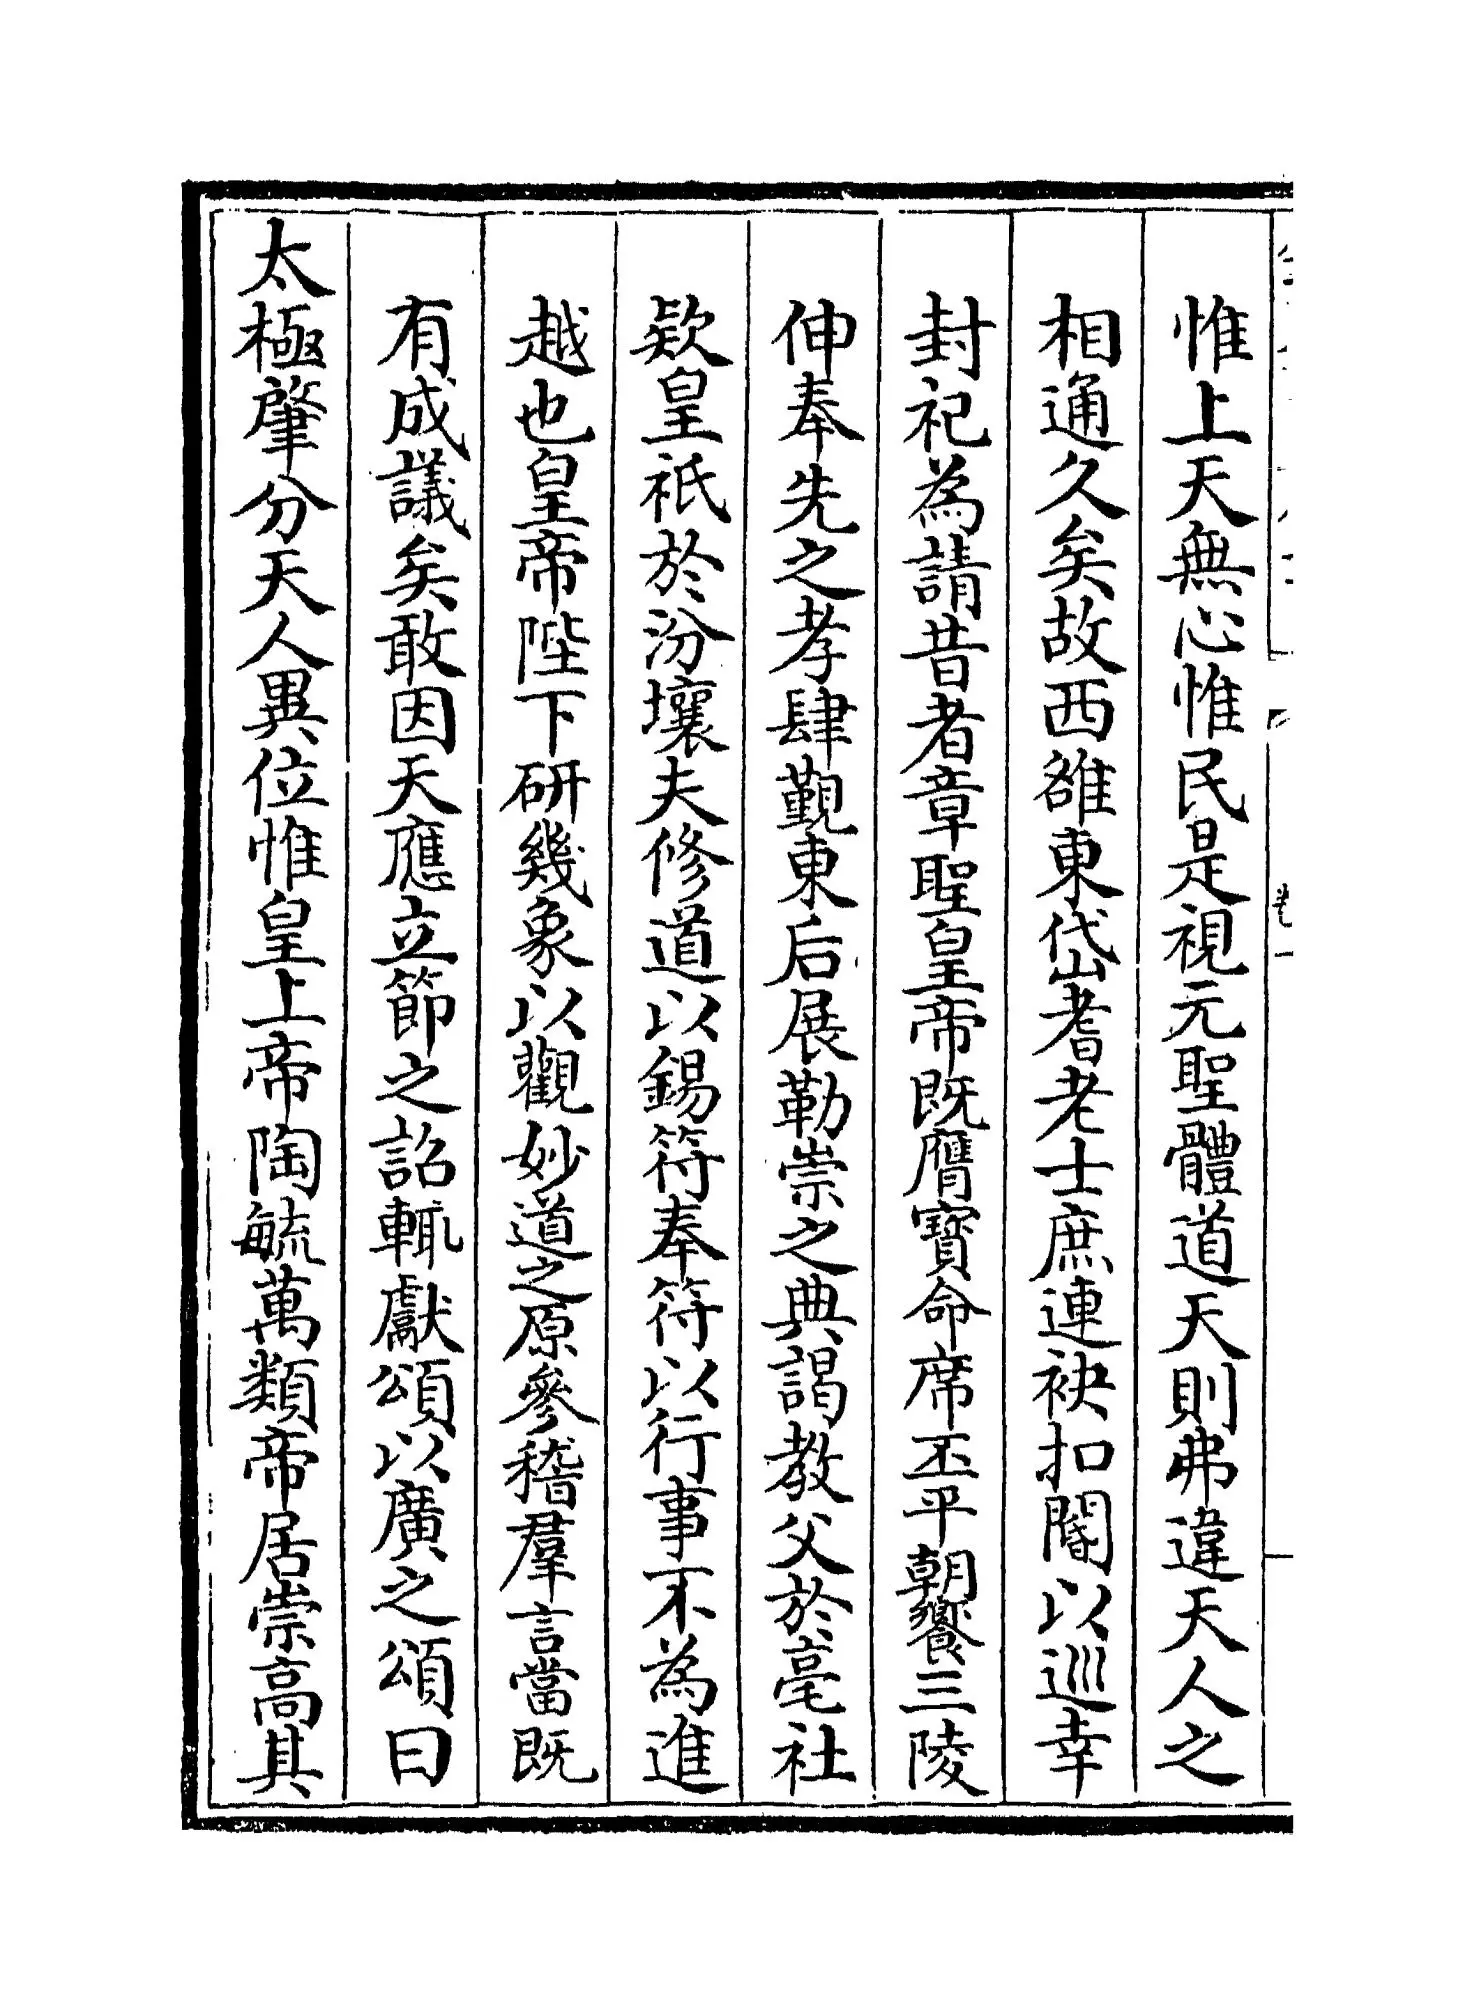 惟上天無心惟民是視元聖體道天則弗違天人之
相通久矣故西雒東岱耆老士庶連袂扣閽以巡幸
封祀為請昔者章聖皇帝既膺寶命席丕平朝饗三陵
伸奉先之孝肆覲東后展勒崇之典謁教父於亳社
欵皇祇於汾壤夫修道以錫符奉符以行事不為進
越也皇帝陛下研幾象以觀妙道之原參稽羣言當既
有成議矣敢因天應立節之詔輒獻頌以廣之頌曰
太極肇分天人異位惟皇上帝陶毓萬類帝居崇高其